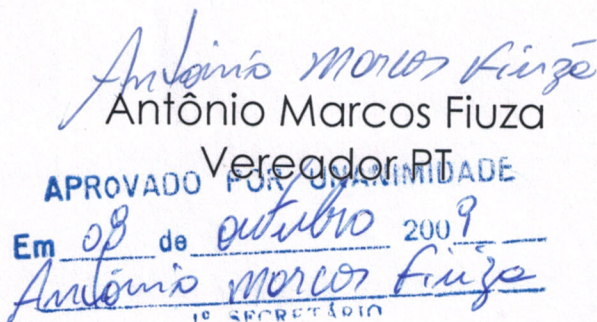 Antônio Marcos Fiuza
Antônio Marcos Fiuza
Vereador PT
APROVADO POR UNANIMIDADE
Em 08 de outubro 2009
Antônio Marcos Fiuza
1º SECRETÁRIO